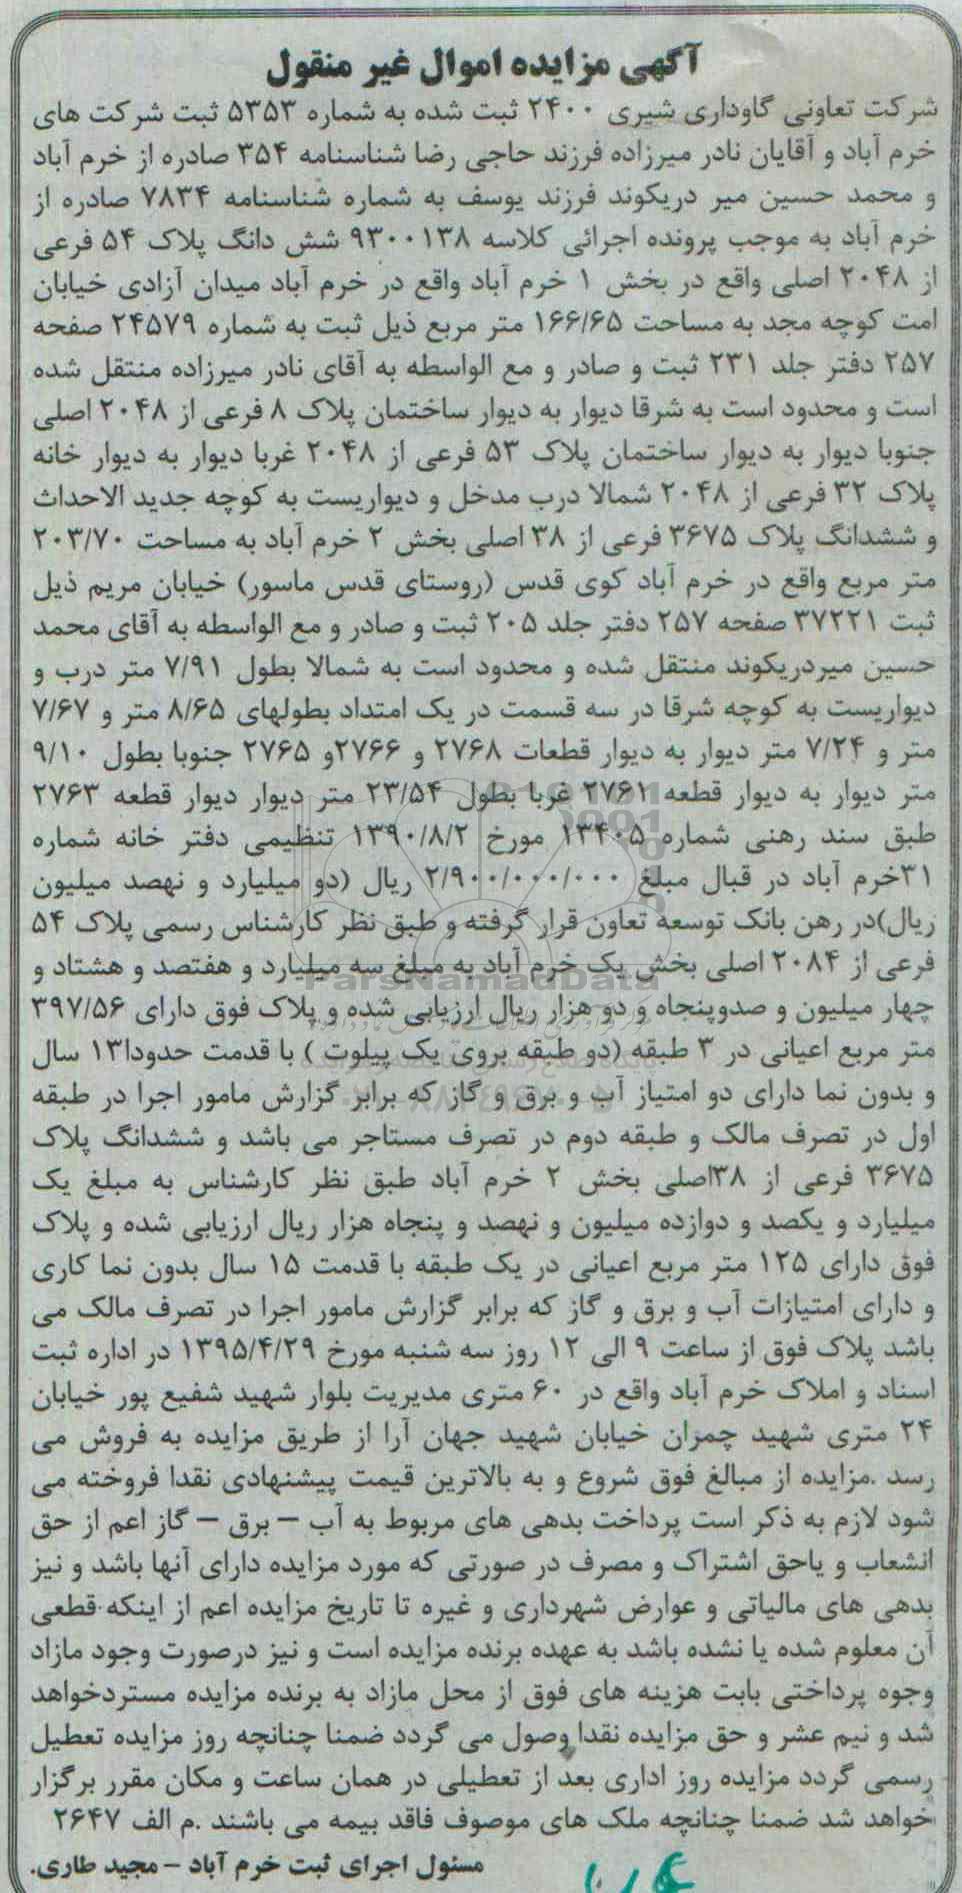 آگهی مزایده اموال غیر منقول
شرکت تعاونی گاوداری شیری ۲۴۰۰ ثبت شده به شماره ۵۳۵۳ ثبت شرکت های
خرم آباد و آقایان نادر میرزاده فرزند حاجی رضا شناسنامه ۳۵۴ صادره از خرم آباد
و محمد حسین میر دریکوند فرزند یوسف به شماره شناسنامه ۷۸۳۴ صادره از
خرم آباد به موجب پرونده اجرائی کلاسه ۹۳۰۰۱۳۸ شش دانگ پلاک ۵۴ فرعی
از ۲۰۴۸ اصلی واقع در بخش ۱ خرم آباد واقع در خرم آباد میدان آزادی خیابان
امت کوچه مجد به مساحت ۱۶۶/۶۵ متر مربع ذیل ثبت به شماره ۲۴۵۷۹ صفحه
۲۵۷ دفتر جلد ۲۳۱ ثبت و صادر و مع الواسطه به آقای نادر میرزاده منتقل شده
است و محدود است به شرقا دیوار به دیوار ساختمان پلاک ۸ فرعی از ۲۰۴۸ اصلی
جنوبا دیوار به دیوار ساختمان پلاک ۵۳ فرعی از ۲۰۴۸ غربا دیوار به دیوار خانه
پلاک ۳۲ فرعی از ۲۰۴۸ شمالا درب مدخل و دیواریست به کوچه جدید الاحداث
و ششدانگ پلاک ۳۶۷۵ فرعی از ۳۸ اصلی بخش ۲ خرم آباد به مساحت ۲۰۳/۷۰
متر مربع واقع در خرم آباد کوی قدس (روستای قدس ماسور) خیابان مریم ذیل
ثبت ۳۷۲۲۱ صفحه ۲۵۷ دفتر جلد ۲۰۵ ثبت و صادر و مع الواسطه به آقای محمد
حسین میردریکوند منتقل شده و محدود است به شمالا بطول ۷/۹۱ متر درب و
دیواریست به کوچه شرقا در سه قسمت در یک امتداد بطولهای ۸/۶۵ متر و ۷/۶۷
متر و ۷/۲۴ متر دیوار به دیوار قطعات ۲۷۶۸ و ۲۷۶۶و ۲۷۶۵ جنوبا بطول ۹/۱۰
متر دیوار به دیوار قطعه ۲۷۶۱ غربا بطول ۲۳/۵۴ متر دیوار دیوار قطعه ۲۷۶۳
طبق سند رهنی شماره ۱۳۴۰۵ مورخ ۱۳۹۰/۸/۲ تنظیمی دفتر خانه شماره
۳۱خرم آباد در قبال مبلغ ۲/۹۰۰/۰۰۰/۰۰۰ ریال (دو میلیارد و نهصد میلیون
ریال)در رهن بانک توسعه تعاون قرار گرفته و طبق نظر کارشناس رسمی پلاک ۵۴
فرعی از ۲۰۸۴ اصلی بخش یک خرم آباد به مبلغ سه میلیارد و هفتصد و هشتاد و
چهار میلیون و صدوپنجاه و دو هزار ریال ارزیابی شده و پلاک فوق دارای ۳۹۷/۵۶
متر مربع اعیانی در ۳ طبقه (دو طبقه بروی یک پیلوت ) با قدمت حدودا۱۳ سال
و بدون نما دارای دو امتیاز آب و برق و گاز که برابر گزارش مامور اجرا در طبقه
اول در تصرف مالک و طبقه دوم در تصرف مستاجر می باشد و ششدانگ پلاک
۳۶۷۵ فرعی از ۳۸اصلی بخش ۲ خرم آباد طبق نظر کارشناس به مبلغ یک
میلیارد و یکصد و دوازده میلیون و نهصد و پنجاه هزار ریال ارزیابی شده و پلاک
فوق دارای ۱۲۵ متر مربع اعیانی در یک طبقه با قدمت ۱۵ سال بدون نما کاری
و دارای امتیازات آب و برق و گاز که برابر گزارش مامور اجرا در تصرف مالک می
باشد پلاک فوق از ساعت ۹ الی ۱۲ روز سه شنبه مورخ ۱۳۹۵/۴/۲۹ در اداره ثبت
اسناد و املاک خرم آباد واقع در ۶۰ متری مدیریت بلوار شهید شفیع پور خیابان
۲۴ متری شهید چمران خیابان شهید جهان آرا از طریق مزایده به فروش می
رسد .مزایده از مبالغ فوق شروع و به بالاترین قیمت پیشنهادی نقدا فروخته می
شود لازم به ذکر است پرداخت بدهی های مربوط به آب – برق – گاز اعم از حق
انشعاب و یاحق اشتراک و مصرف در صورتی که مورد مزایده دارای آنها باشد و نیز
بدهی های مالیاتی و عوارض شهرداری و غیره تا تاریخ مزایده اعم از اینکه قطعی
آن معلوم شده یا نشده باشد به عهده برنده مزایده است و نیز درصورت وجود مازاد
وجوه پرداختی بابت هزینه های فوق از محل مازاد به برنده مزایده مستردخواهد
شد و نیم عشر و حق مزایده نقدا وصول می گردد ضمنا چنانچه روز مزایده تعطیل
رسمی گردد مزایده روز اداری بعد از تعطیلی در همان ساعت و مکان مقرر برگزار
خواهد شد ضمنا چنانچه ملک های موصوف فاقد بیمه می باشند .م الف ۲۶۴۷
مسئول اجرای ثبت خرم آباد – مجید طاری.
ParsNamadData